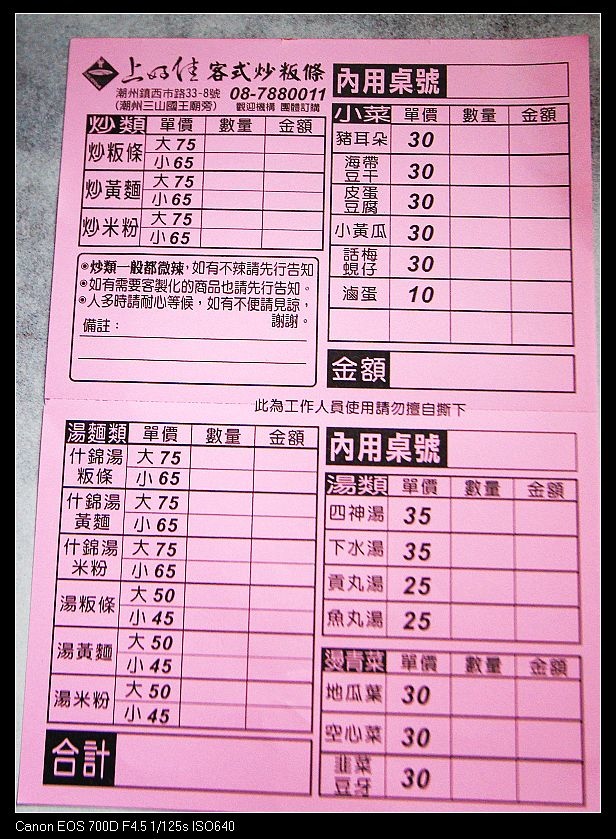 上好佳 客式炒粄條
潮州鎮西市路33-8號 08-7880011
(潮州三山國王廟旁) 歡迎機構 團體訂購
炒類 單價 數量 金額
炒粄條 大 75
小 65
炒黃麵 大 75
小 65
炒米粉 大 75
小 65
◉炒類一般都微辣，如有不辣請先行告知
◉如有需要客製化的商品也請先行告知。
◉人多時請耐心等候，如有不便請見諒，
謝謝。
備註：
內用桌號
小菜 單價 數量 金額
豬耳朵 30
海帶
豆干 30
皮蛋
豆腐 30
小黃瓜 30
話梅
蜆仔 30
滷蛋 10
金額
此為工作人員使用請勿擅自撕下
湯麵類 單價 數量 金額
什錦湯
粄條 大 75
小 65
什錦湯
黃麵 大 75
小 65
什錦湯
米粉 大 75
小 65
湯粄條 大 50
小 45
湯黃麵 大 50
小 45
湯米粉 大 50
小 45
合計
內用桌號
湯類 單價 數量 金額
四神湯 35
下水湯 35
貢丸湯 25
魚丸湯 25
燙青菜 單價 數量 金額
地瓜葉 30
空心菜 30
韭菜
豆牙 30
Canon EOS 700D F4.5 1/125s ISO640